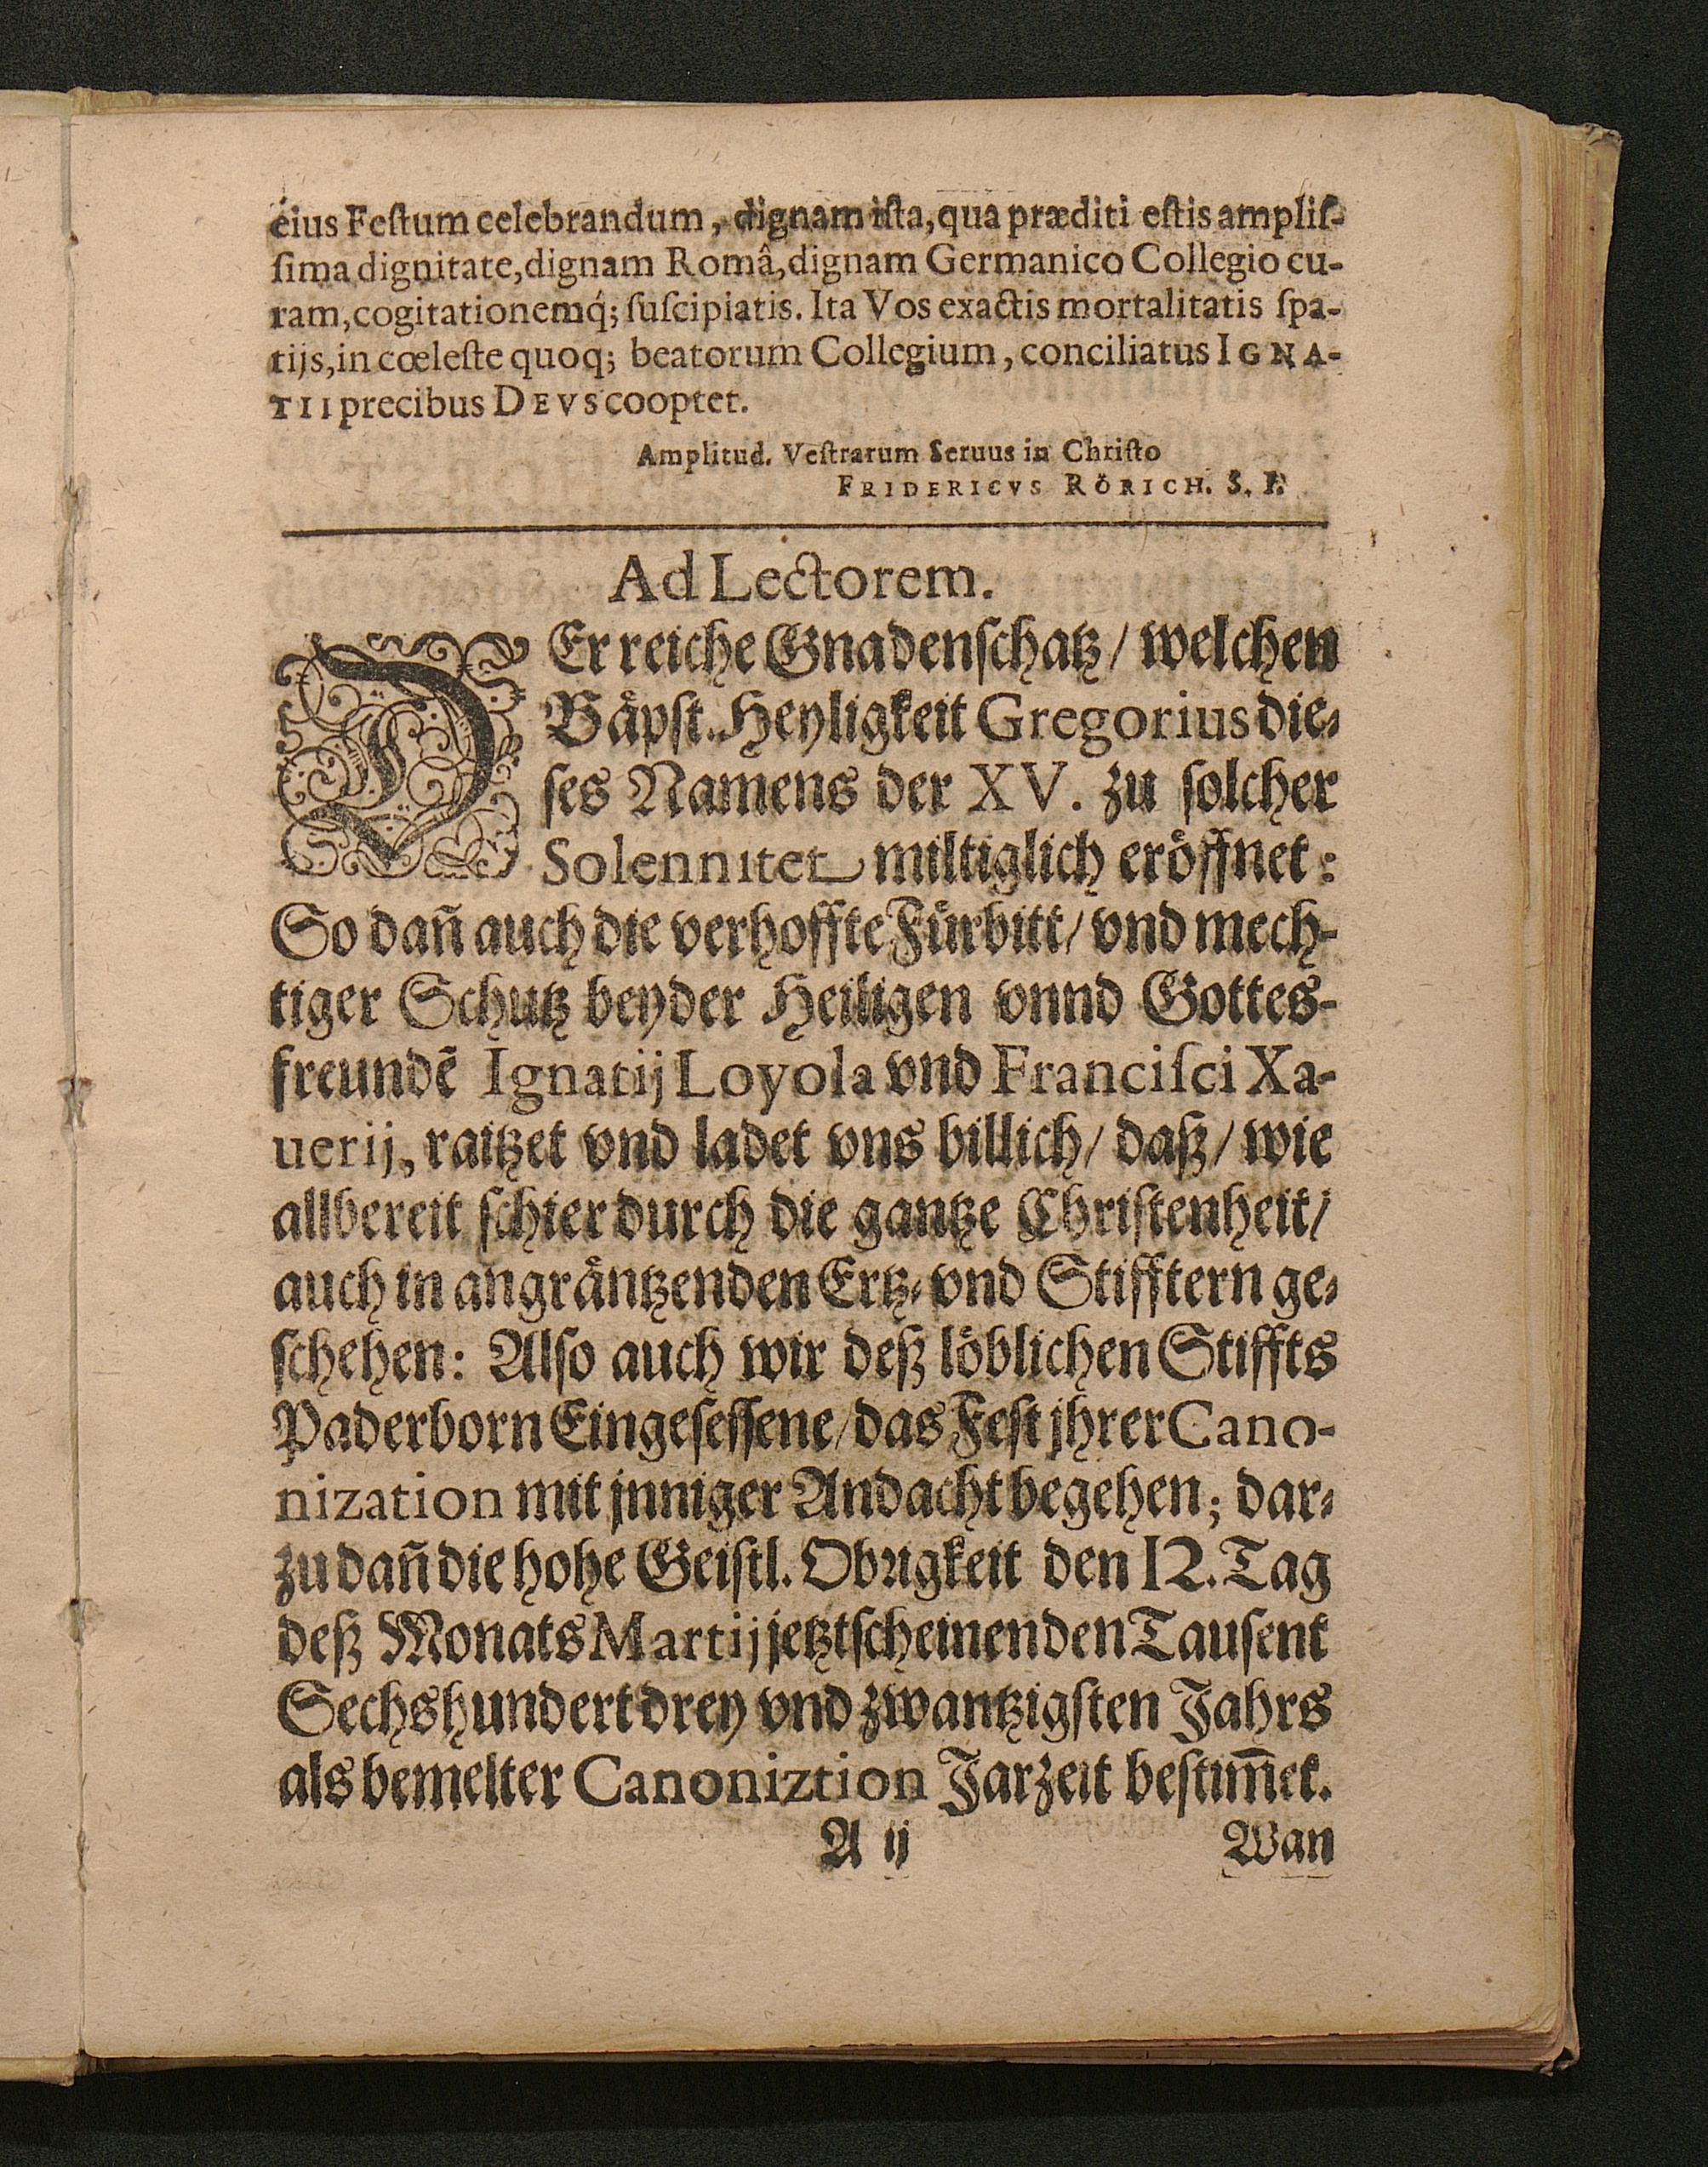 eius Feſtum celebrandum, dignam iſta, qua præditi eſtis ampliſ-
ſima dignitate, dignam Româ, dignam Germanico Collegio cu-
ram, cogitationemq́; ſuſcipiatis. Ita Vos exactis mortalitatis ſpa-
tijs, in cœleſte quoq; beatorum Collegium, conciliatus IGNA-
TII precibus DEVS cooptet.
Amplitud. Veſtrarum Seruus in Chriſto
FRIDERICVS RÖRICH. S. I.
Ad Lectorem.
DEr reiche Gnadenſchatz / welchen
Bäpſt. Heyligkeit Gregorius die-
ſes Namens der XV. zu ſolcher
Solennitet miltiglich eröffnet:
So dañ auch die verhoffte Fürbitt / vnd mech-
tiger Schutz beyder Heiligen vnnd Gottes-
freundẽ Ignatij Loyola vnd Franciſci Xa-
uerij, raitzet vnd ladet vns billich / daß / wie
allbereit ſchier durch die gantze Chriſtenheit /
auch in angräntzenden Ertz- vnd Stifftern ge-
ſchehen: Alſo auch wir deß löblichen Stiffts
Paderborn Eingeſeſſene / das Feſt jhrer Cano-
nization mit jnniger Andacht begehen; dar-
zu dañ die hohe Geiſtl. Obrigkeit den 12. Tag
deß Monats Martij jetztſcheinenden Tauſent
Sechshundert drey vnd zwantzigſten Jahrs
als bemelter Canoniztion Jarzeit beſtim̃et.
A ij Wan